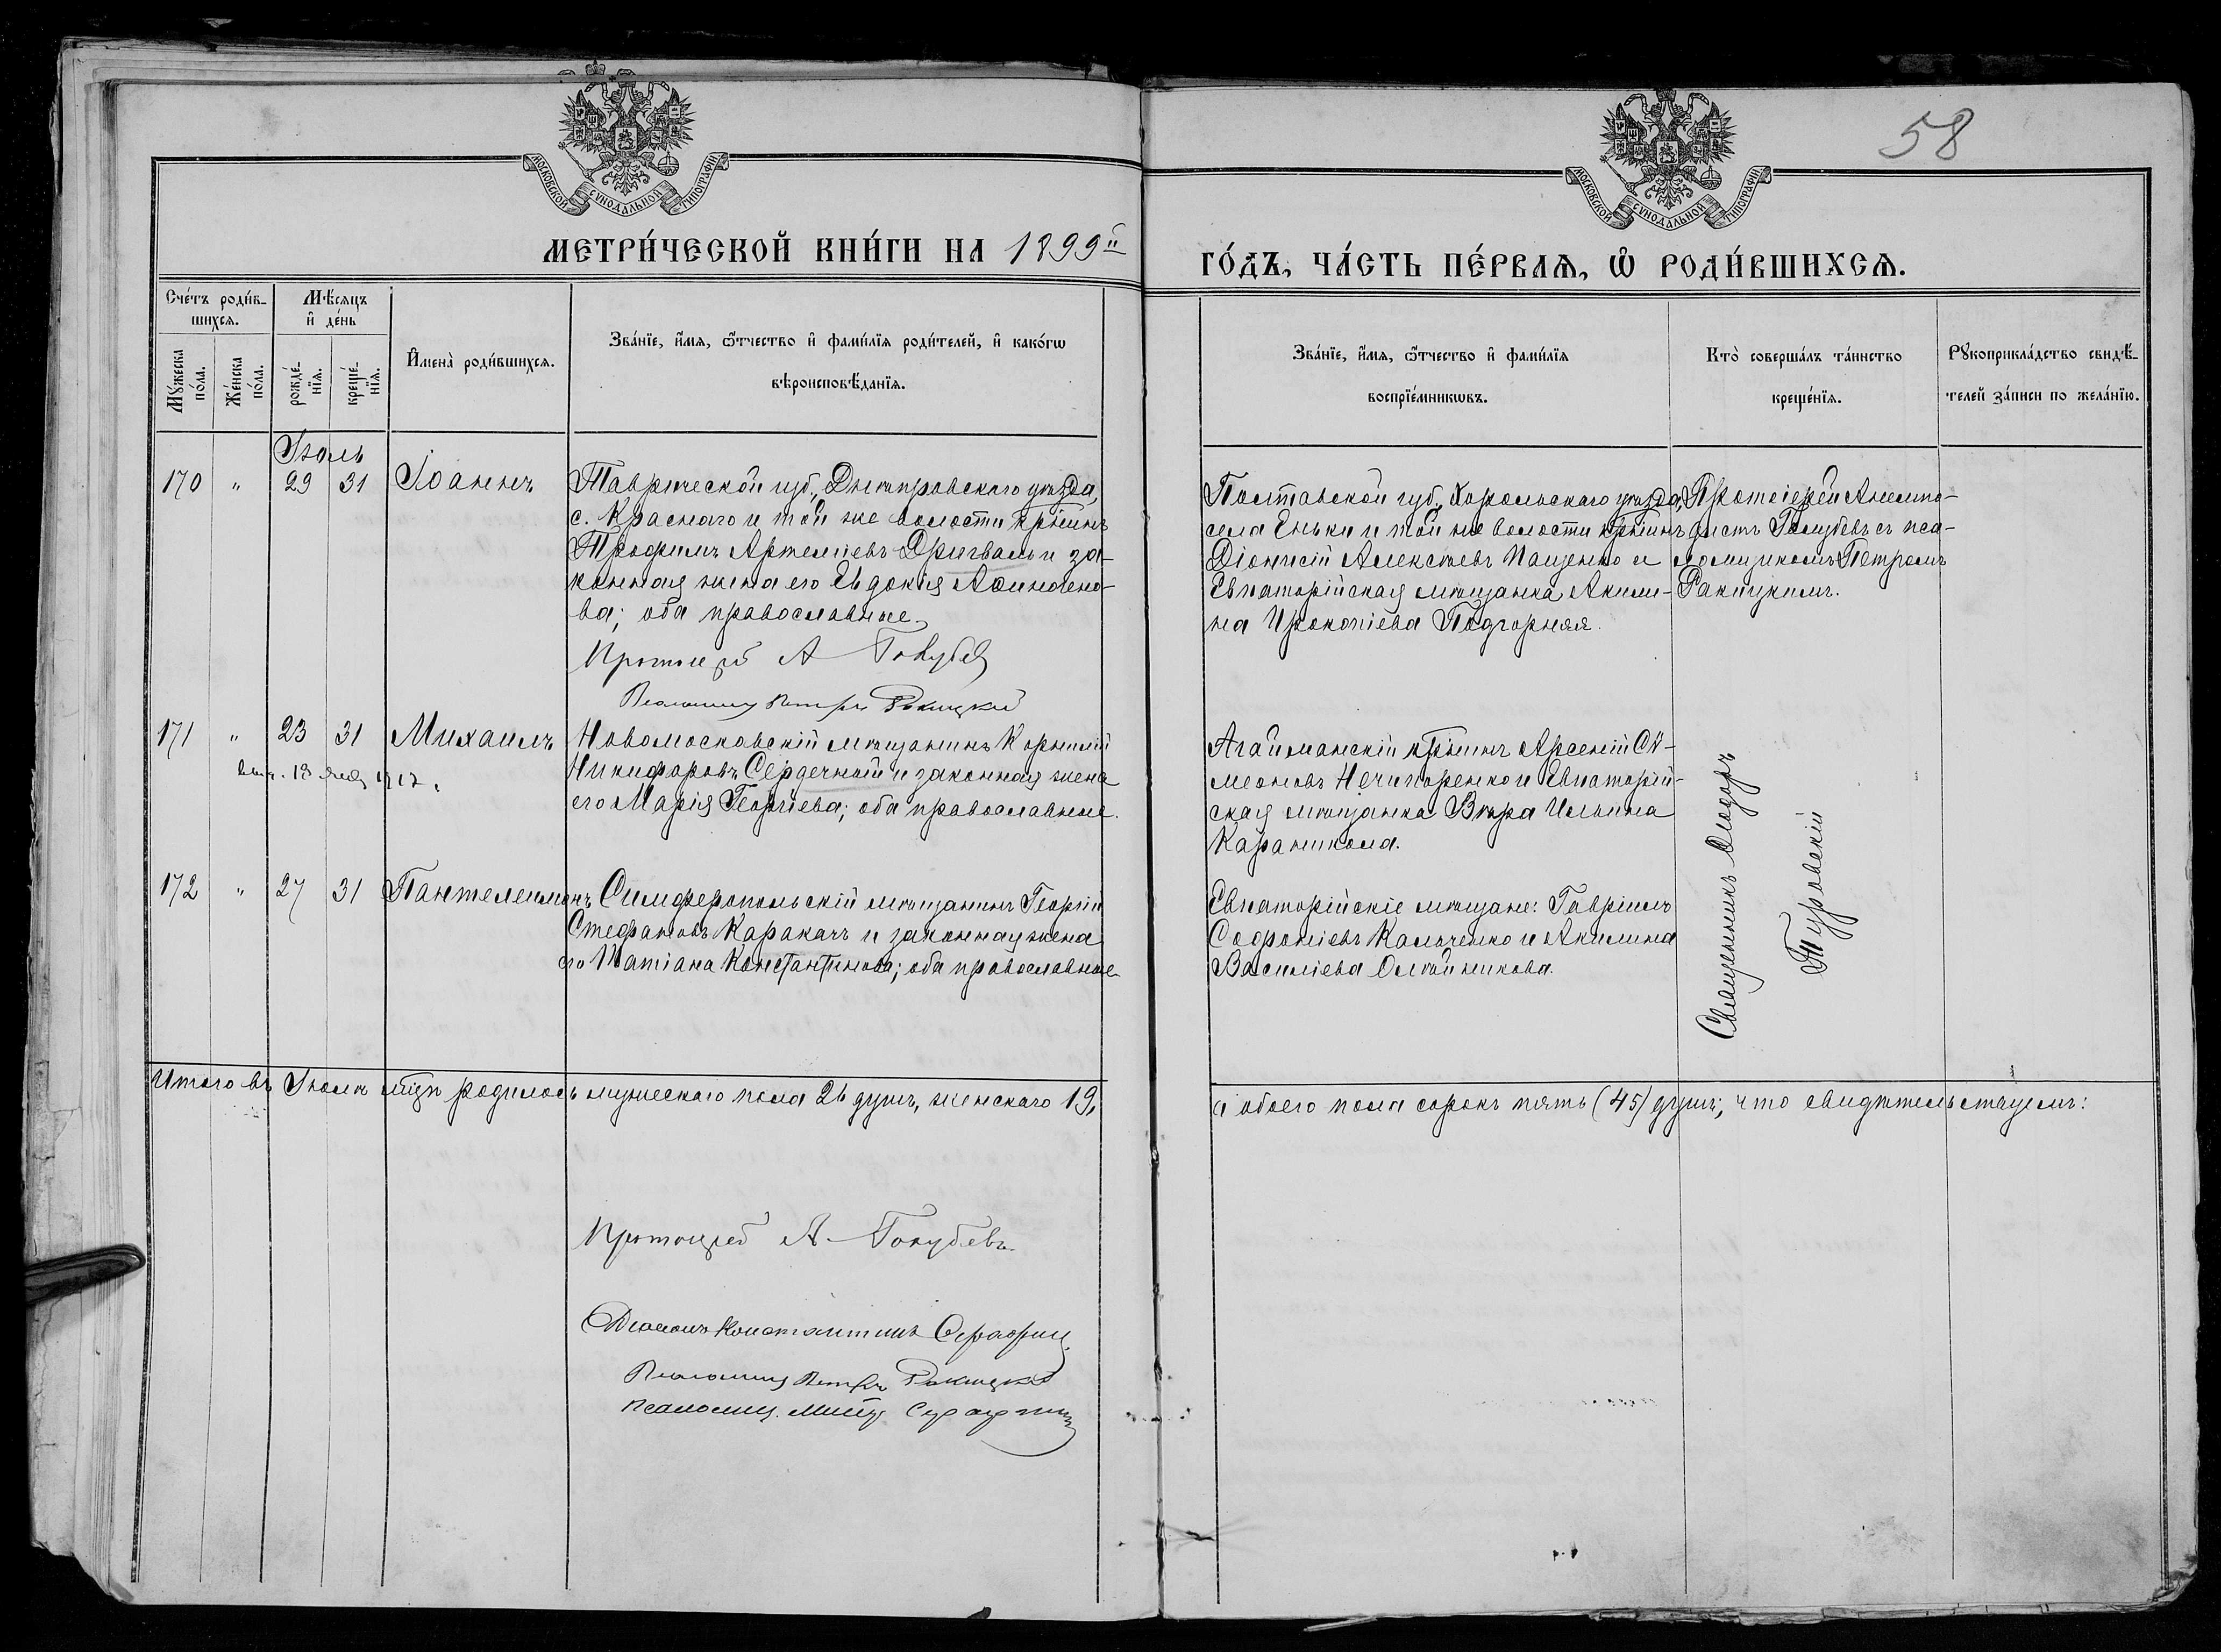 МОСКОВСКОЙ СѴНОДАЛЬНОЙ ТИПОГРАФІИ
МОСКОВСКОЙ СѴНОДАЛЬНОЙ ТИПОГРАФІИ
58
МЕТРИ́ЧЕСКОЙ КНИ́ГИ НА 1899й
ГО́ДЪ, ЧА́СТЬ ПЕ́РВАѦ, Ѡ҆ РОДИ́ВШИХСѦ.
Сче́тъ роди́в-
шихсѧ.
Мѣ́сѧцъ
и҆ де́нь
Мꙋ́жеска
по́ла.
Же́нска
по́ла.
рожде́-
нїѧ.
креще́-
нїѧ.
И҆мена̀ роди́вшихсѧ.
Зва́нїе, и҆́мѧ, ѻ҆́тчество и҆ фами́лїѧ роди́телей, и҆ како́гѡ
вѣроисповѣ́данїѧ.
Зва́нїе, и҆́мѧ, ѻ҆́тчество и҆ фами́лїѧ
воспрїе́мникѡвъ.
Кто̀ соверша́лъ та́инство
креще́нїѧ.
Рꙋкоприкла́дство свидѣ́-
телей за́писи по жела́нїю.
Іюль
170 " 29 31 Іоаннъ
Таврической губ., Днѣпровскаго уѣзда,
с. Краснаго и той же волости кр҃нинъ
Трофимъ Артеміевъ Дригваль и за-
конная жена его Евдокія
ва; оба православные.
Протоіерей А Голубев
Псаломщ Петръ Ракицкій
Полтавской губ., Хорольскаго уѣзда,
села Еньки и той же волости кр҃нинъ
Діонисій Алексѣевъ Пащенко и
Евпаторійская мѣщанка Акили-
на Прокопіева Подгорняя.
Протоіерей Ансемпо-
дистъ Голубевъ съ пса-
ломщикомъ Петромъ
Ракицкимъ.
171 " 23 31 Михаилъ
выд. 18 янв 1917.
Новомосковскій мѣщанинъ Корнилій
Никифоровъ Сердечный и законная жена
его Марія Георгіева; оба православные.
Агайманскій кр҃нинъ Арсеній Си-
меоновъ Нечипоренко и Евпаторій-
ская мѣщанка Вѣра Ильина
Караникола.
Священникъ Ѳеодоръ
Туровскій
172 " 27 31 Пантелеимонъ
Симферопольскій мѣщанинъ Георгій
Стефановъ Каракачъ и законная жена
его Татіана Константинова; оба православные
Евпаторійскіе мѣщане: Гавріилъ
Софроніевъ Кальченко и Акилина
Василіева Олейникова.
Итого въ Іюлѣ мцѣ родилось мужескаго пола 26 душъ, женскаго 19,
а обоего пола сорокъ пять (45) душъ; что свидѣтельствуемъ:
Протоіерей А Голубевъ.
Діаконъ Константинъ Серафим
Псаломщ Петръ Ракицкій
Псаломщ.